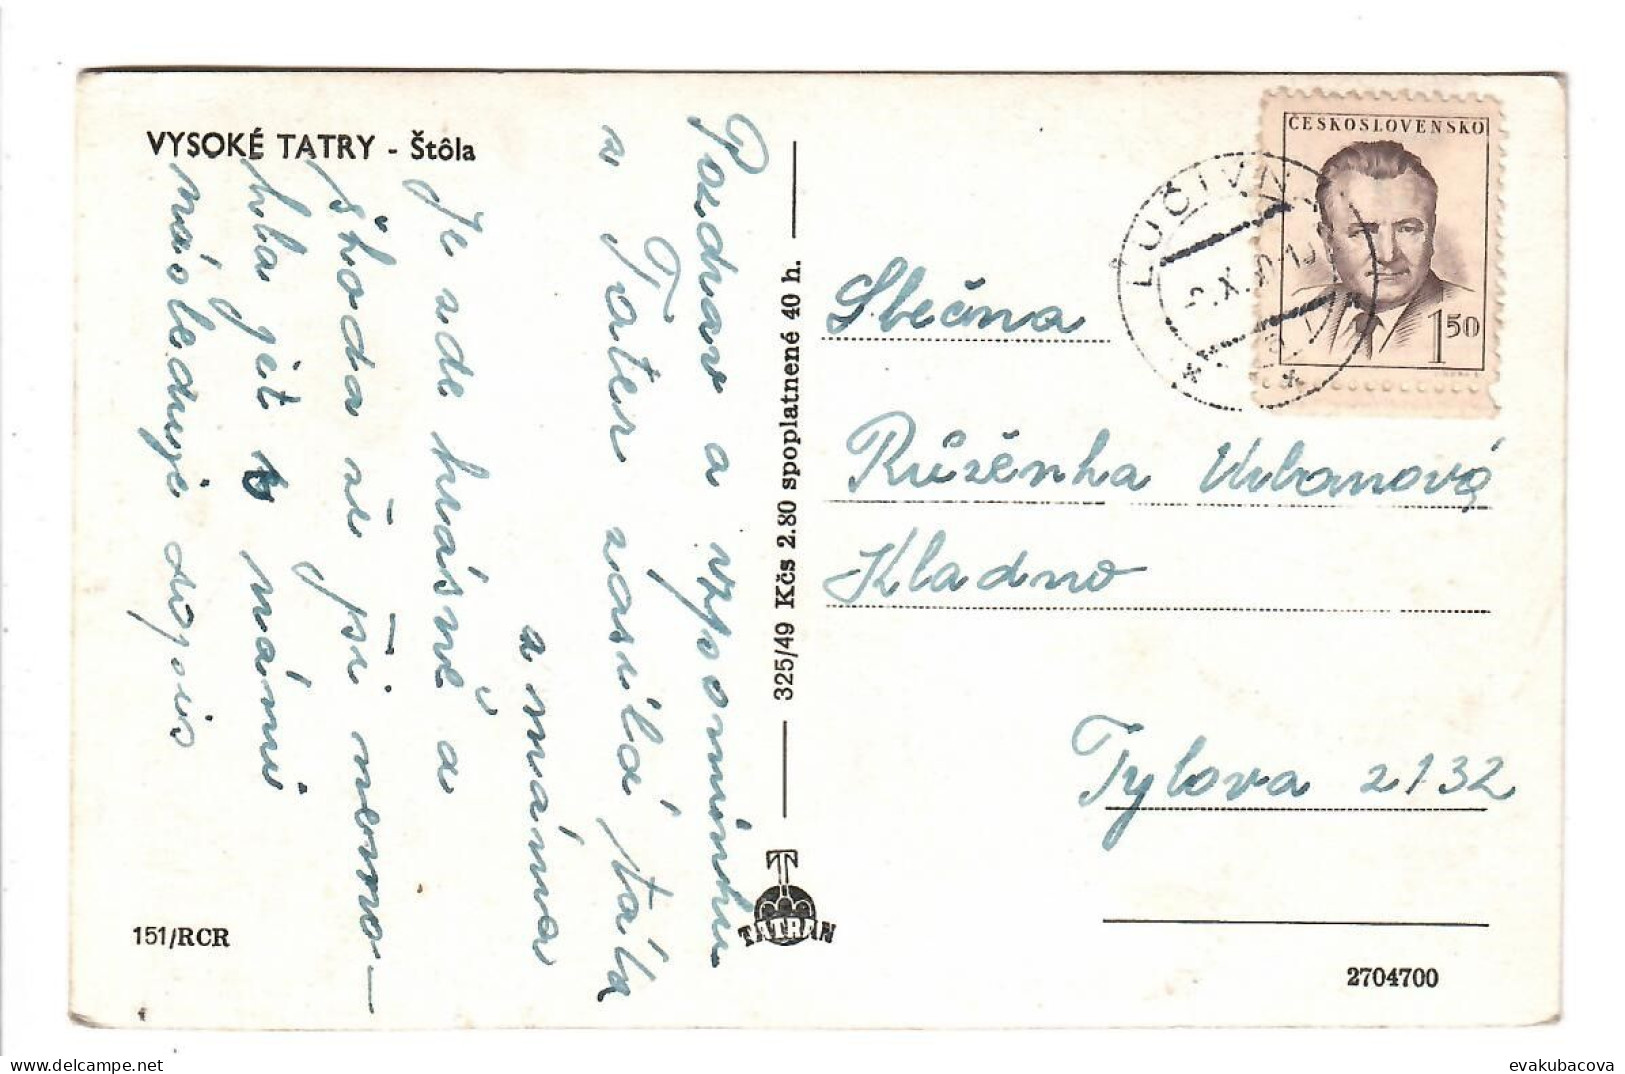 VYSOKÉ TATRY - Štôla
Pozdrav a vzpomínku
z Tater zasílá táta
a máma
Je zde krásně a
škoda že jsi nemo-
hla jet s námi
následuje dopis
151/RCR
325/49 Kčs 2.80 spoplatnené 40 h.
TATRAN
ČESKOSLOVENSKO
1 50
LUČIVN
Slečna
Růženka Urbanová
Kladno
Tylova 2132
2704700
evakubacova